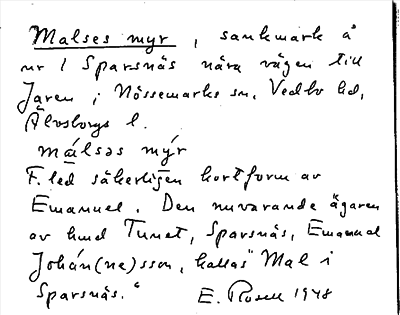 Malses myr, sankmark å
nr 1 Sparsnäs nära vägen till
Jaren i Nössemarks sn, Vedbo hd,
Älvsborgs l.
málsəs mýr
F.led säkerligen kortform av
Emanuel. Den nuvarande ägaren
av hmd Tunet, Sparsnäs, Emanuel
Johan(ne)sson, kallas "Mal i
Sparsnäs."
E. Rosell 1948